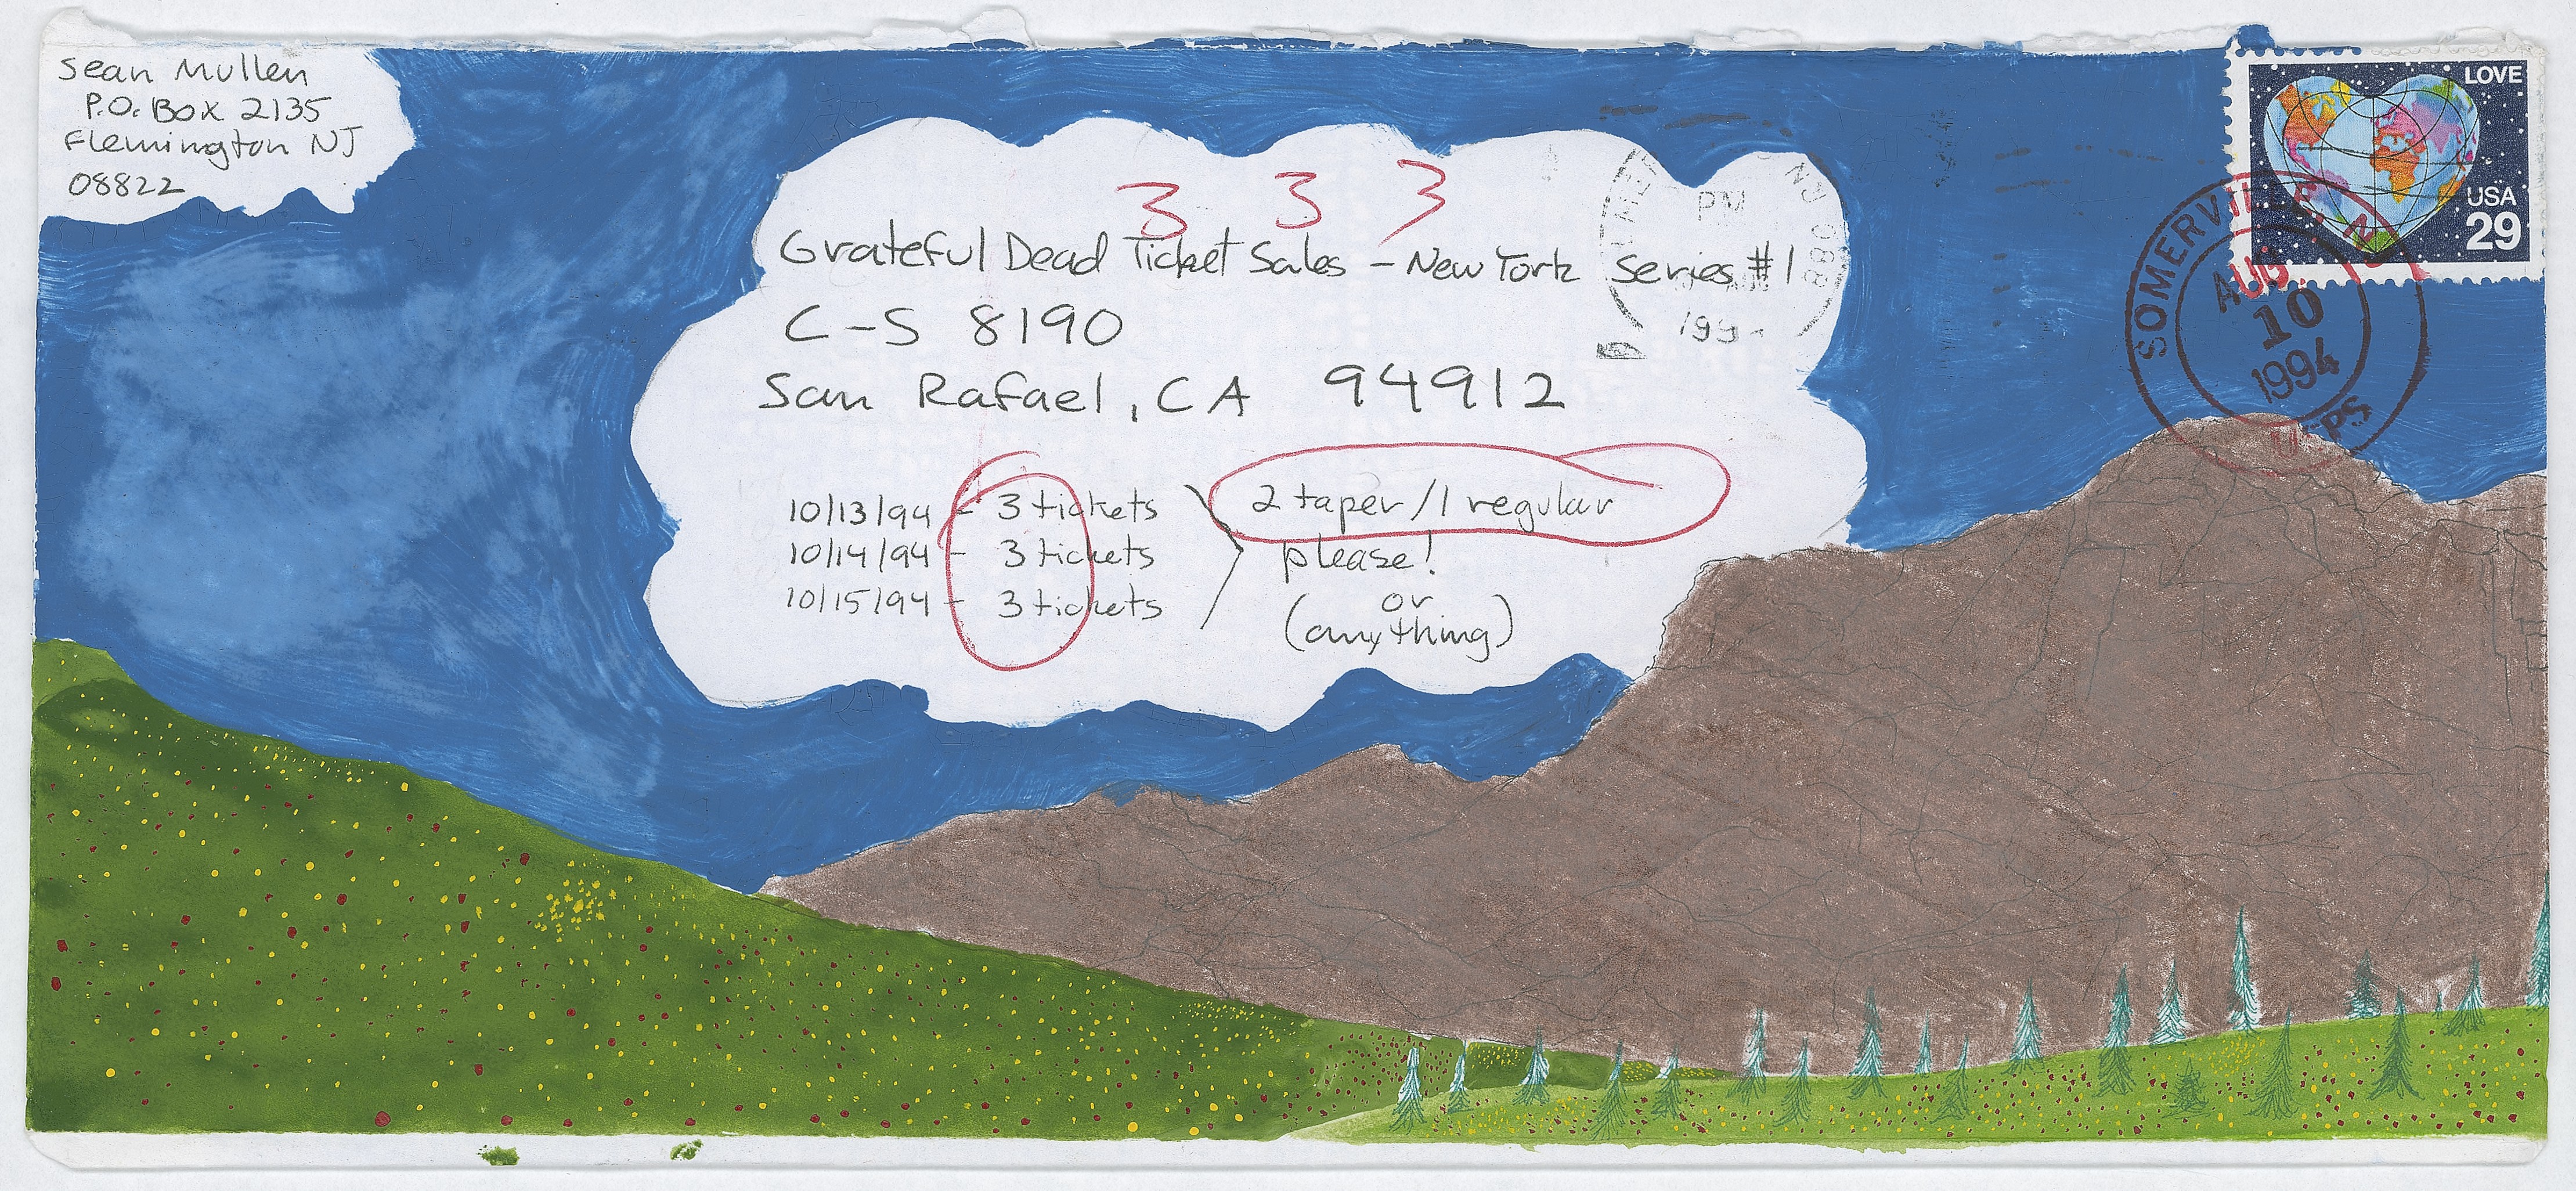 Sean Mullen
P.O. Box 2135
Flemington NJ
08822
LOVE
USA
29
SOMERVILLE NJ
AUG
10
1994
USPS
3 3 3
Grateful Dead Ticket Sales - New York Series #1
C-S 8190
San Rafael, CA 94912
PM
NJ 088
199
10/13/94 - 3 tickets
10/14/94 - 3 tickets
10/15/94 - 3 tickets
2 taper/1 regular
please!
or
(anything)